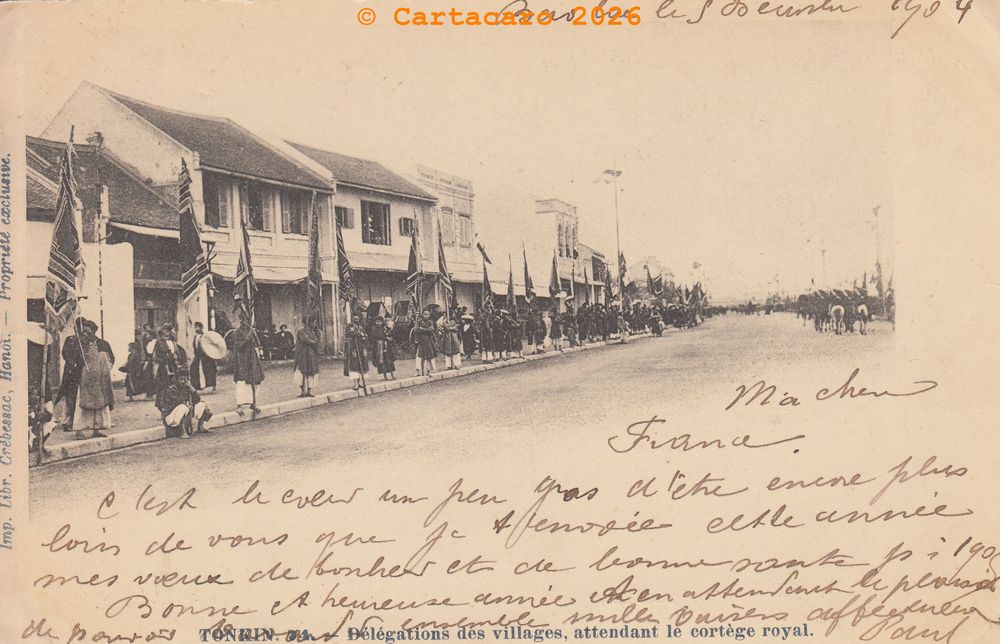 © Cartacazo 2026
le 5 Décembre 1904
Imp. Libr. Crébessac, Hanoï. — Propriété exclusive.
Ma cher
France
C'est le coeur un peu gros d'être encore plus
loin de vous que je t'envoiée cette année
mes voeux de bonheur et de bonne santé p 1905
Bonne et heureuse année et en attendant le plaisir
de pouvoir ensemble mille baisers affectueux
Paul
TONKIN. 34. — Délégations des villages, attendant le cortège royal.